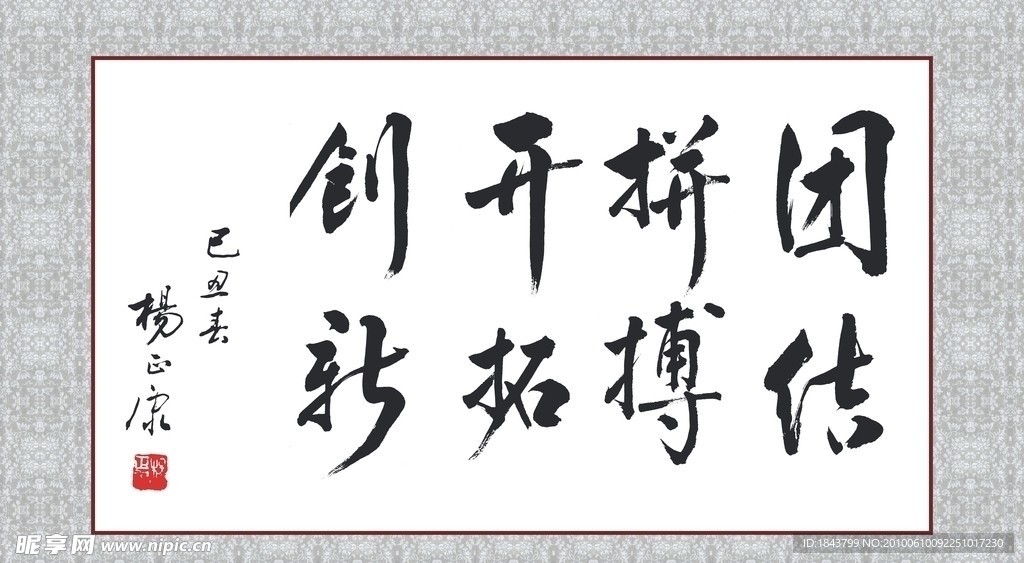 团结
拼搏
开拓
创新
己丑春
楊正康
昵享网 www.nipic.cn
ID:1843799 NO:20100610092251017230